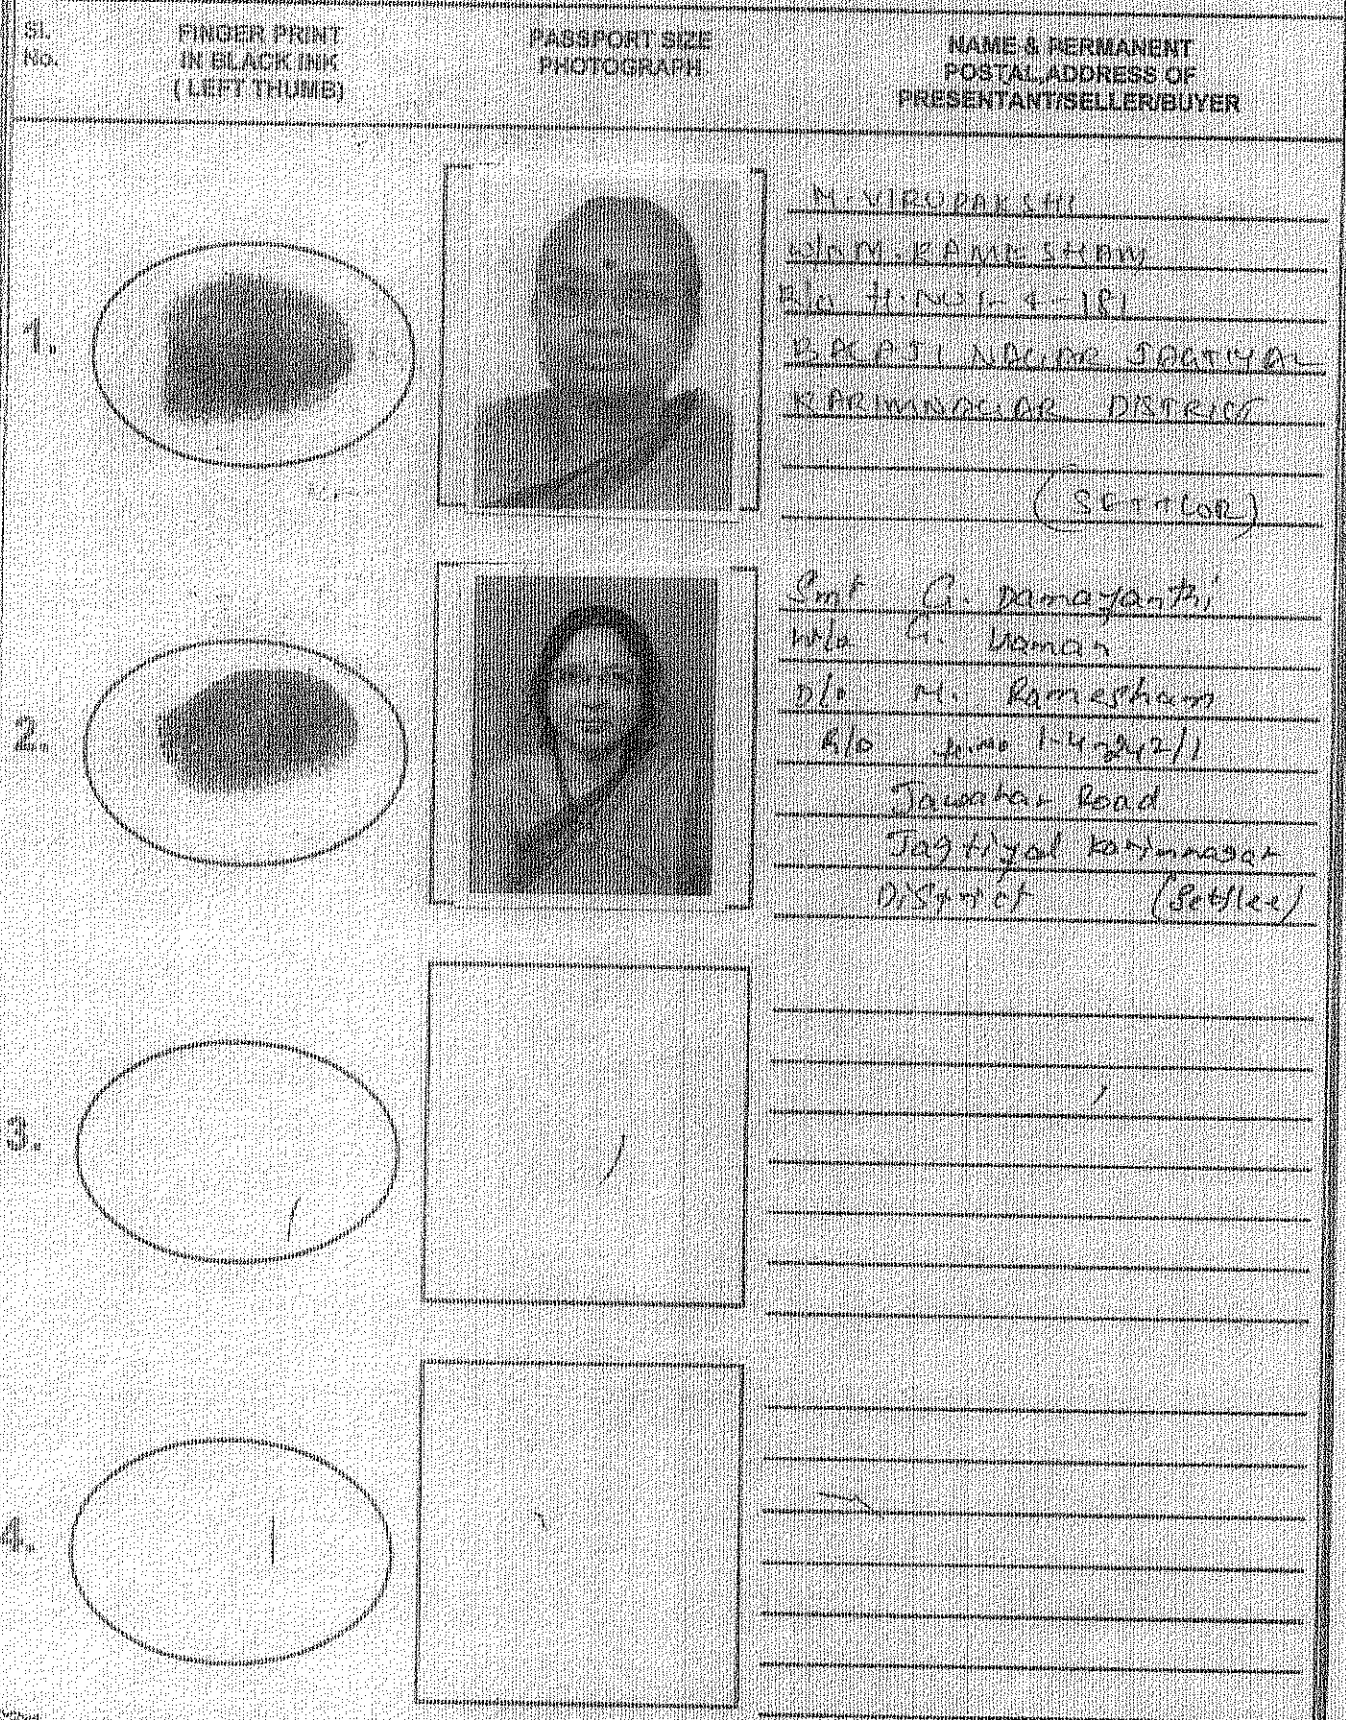 Sl. No.
FINGER PRINT IN BLACK INK (LEFT THUMB)
PASSPORT SIZE PHOTOGRAPH
NAME & PERMANENT POSTAL ADDRESS OF PRESENTANT/SELLER/BUYER
1.
M. VIRUPAKSHI
W/o M. RAMESHAM
R/o H.NO 1-4-181
BALAJI NAGAR JAGTIYAL
KARIMNAGAR DISTRICT
(SETTLOR)
2.
Smt G. Damayanthi
W/o G. Vaman
D/o M. Ramesham
R/o H.No
Jawahar Road
Jagtiyal Karimnagar
District (Settlee)
3.
4.